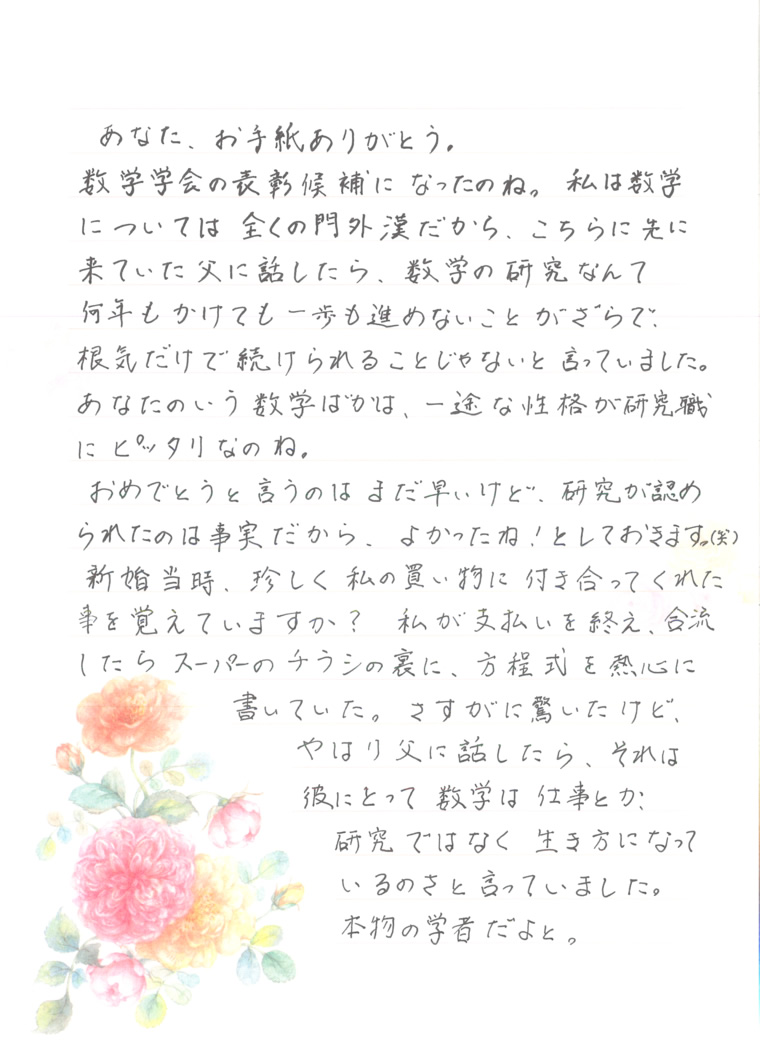 あなた、お手紙ありがとう。
数学学会の表彰候補になったのね。私は数学
については全くの門外漢だから、こちらに先に
来ていた父に話したら、数学の研究なんて
何年もかけても一歩も進めないことがざらで、
根気だけで続けられることじゃないと言っていました。
あなたのいう数学ばかは、一途な性格が研究職
にピッタリなのね。
おめでとうと言うのはまだ早いけど、研究が認め
られたのは事実だから、よかったね!としておきます。(笑)
新婚当時、珍しく私の買い物に付き合ってくれた
事を覚えていますか?私が支払いを終え、合流
したらスーパーのチラシの裏に、方程式を熱心に
書いていた。さすがに驚いたけど、
やはり父に話したら、それは
彼にとって数学は仕事とか、
研究ではなく生き方になって
いるのさと言っていました。
本物の学者だよと。